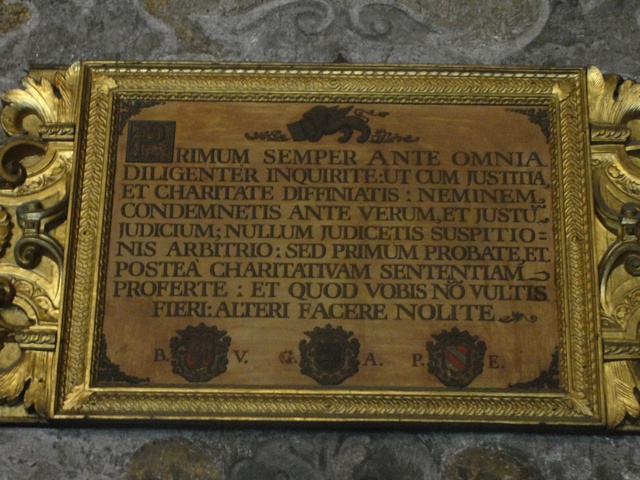 PRIMUM SEMPER ANTE OMNIA
DILIGENTER INQUIRITE: UT CUM JUSTITIA,
ET CHARITATE DIFFINIATIS : NEMINEM
CONDEMNETIS ANTE VERUM, ET JUSTŪ
JUDICIUM; NULLUM JUDICETIS SUSPITIO=
NIS ARBITRIO: SED PRIMUM PROBATE, ET
POSTEÀ CHARITATIVAM SENTENTIAM
PROFERTE : ET QUOD VOBIS NŌ VULTIS
FIERI: ALTERI FACERE NOLITE
B. V. G. A. P. E.